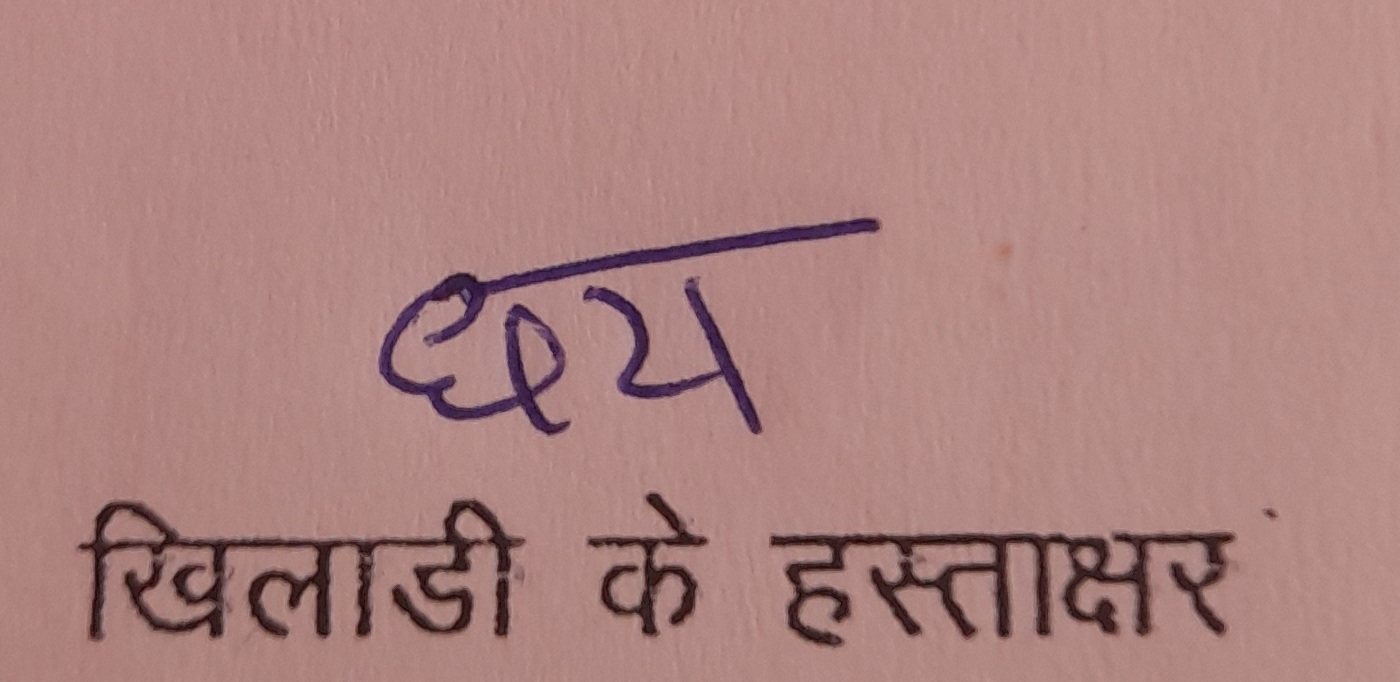 छय
खिलाडी के हस्ताक्षर